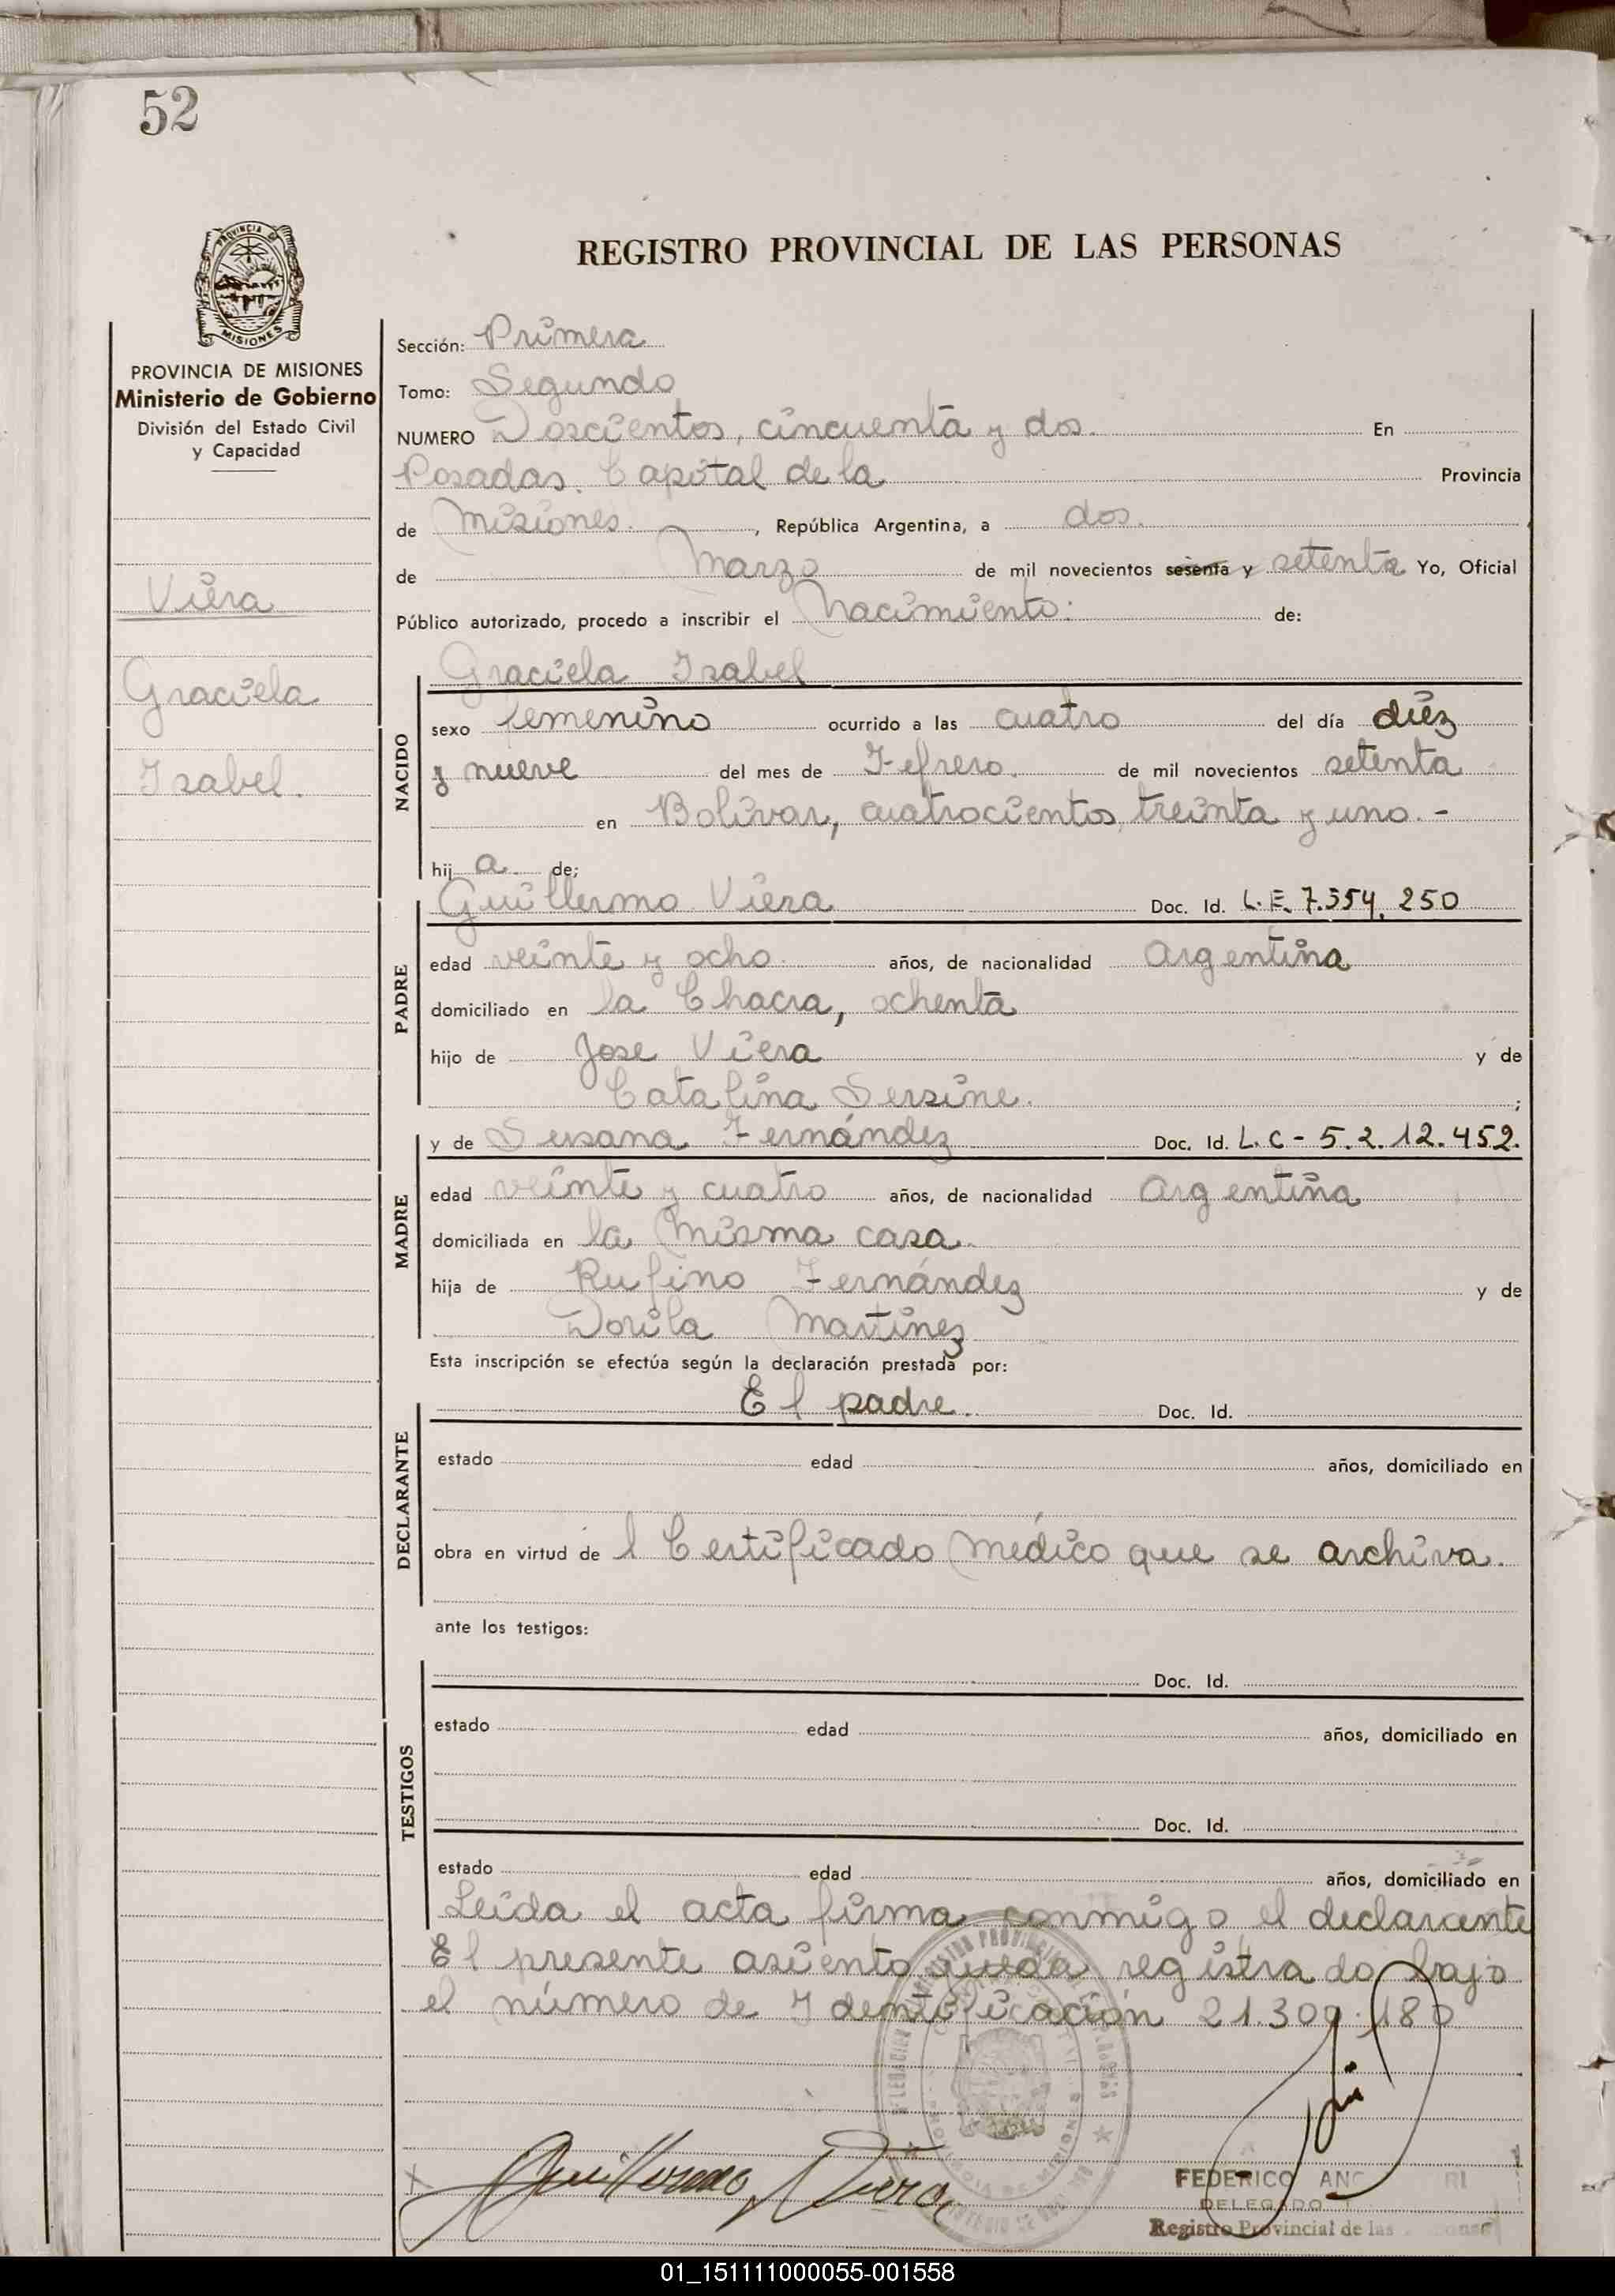 52
PROVINCIA DE
MISIONES
REGISTRO PROVINCIAL DE LAS PERSONAS
PROVINCIA DE MISIONES
Ministerio de Gobierno
División del Estado Civil
y Capacidad
Viera
Graciela
Isabel.
Sección: Primera
Tomo: Segundo
NUMERO Doscientos, cincuenta y dos. En
Posadas. Capital de la Provincia
de Misiones. , República Argentina, a dos.
de Marzo de mil novecientos sesenta y setenta Yo, Oficial
Público autorizado, procedo a inscribir el Nacimiento: de:
Graciela Isabel
NACIDO
sexo femenino ocurrido a las cuatro del día diez
y nueve del mes de Fefrero. de mil novecientos setenta
en Bolívar, cuatrocientos, treinta y uno. -
hij a de;
Guillermo Viera Doc. Id. L.E. 7.554.250
PADRE
edad veinte y ocho. años, de nacionalidad Argentina
domiciliado en la Chacra, ochenta
hijo de Jose Viera y de
Catalina Sersine. ;
y de Susana Fernández Doc. Id. L.C - 5.2.12.452.
MADRE
edad veinte y cuatro años, de nacionalidad Argentina
domiciliada en la Misma casa.
hija de Rufino Fernández y de
Dorila Martinez
Esta inscripción se efectúa según la declaración prestada por:
El padre. Doc. Id.
DECLARANTE
estado edad años, domiciliado en
obra en virtud de l Certificado Médico que se archiva.
ante los testigos:
Doc. Id.
TESTIGOS
estado edad años, domiciliado en
Doc. Id.
estado edad años, domiciliado en
Leída el acta firma conmigo el declarante
El presente asiento queda registrado bajo
el número de Identificación 21.309.180
Guillermo Viera
FEDERICO ANG RI
DELEGADO
Registro Provincial de las
01_151111000055-001558